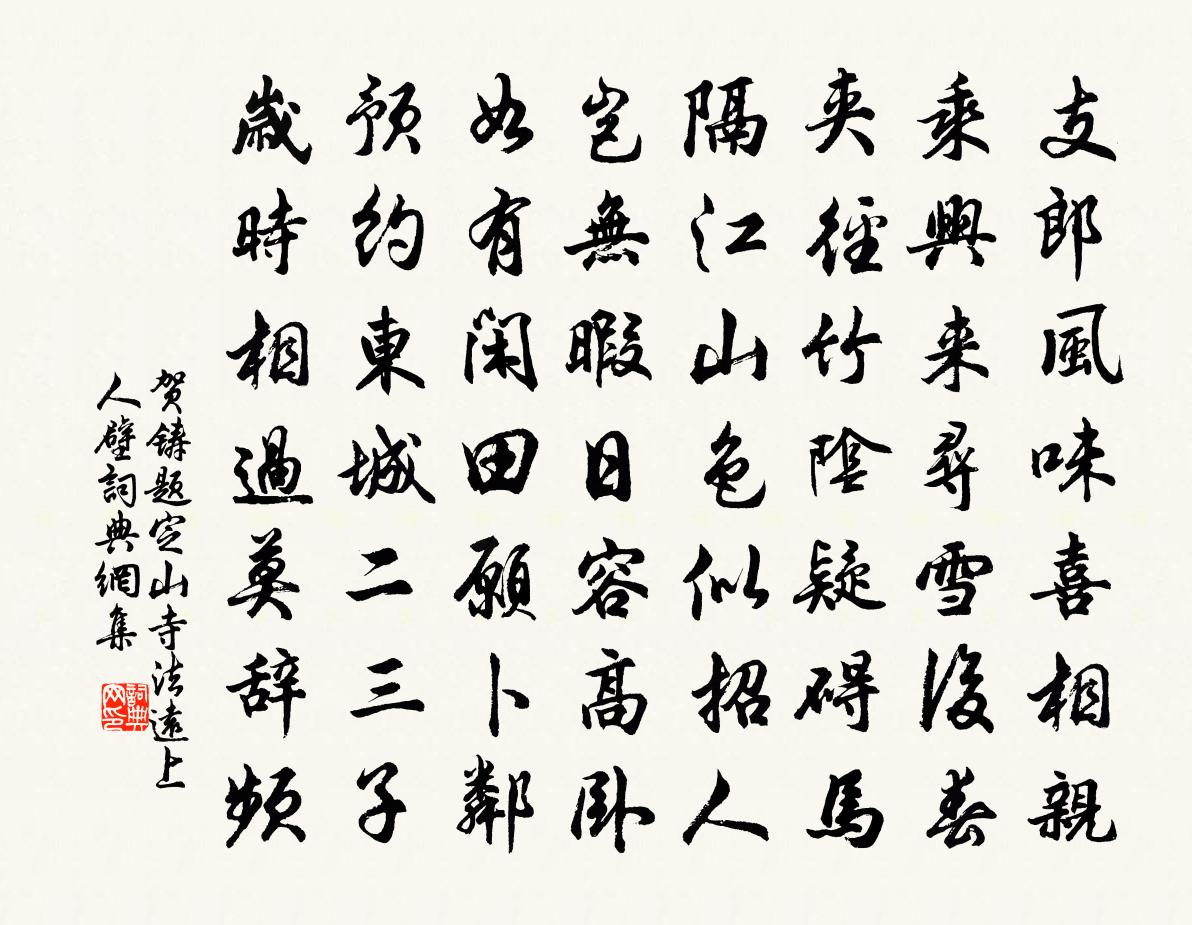 支郎風味喜相親
乘興来尋雪後春
夾徑竹陰疑碍馬
隔江山色似招人
豈無暇日容高卧
如有閑田願卜鄰
預約東城二三子
歲時相過莫辞頻
贺鑄題定山寺法遠上
人壁詞典網集
詞典
网印